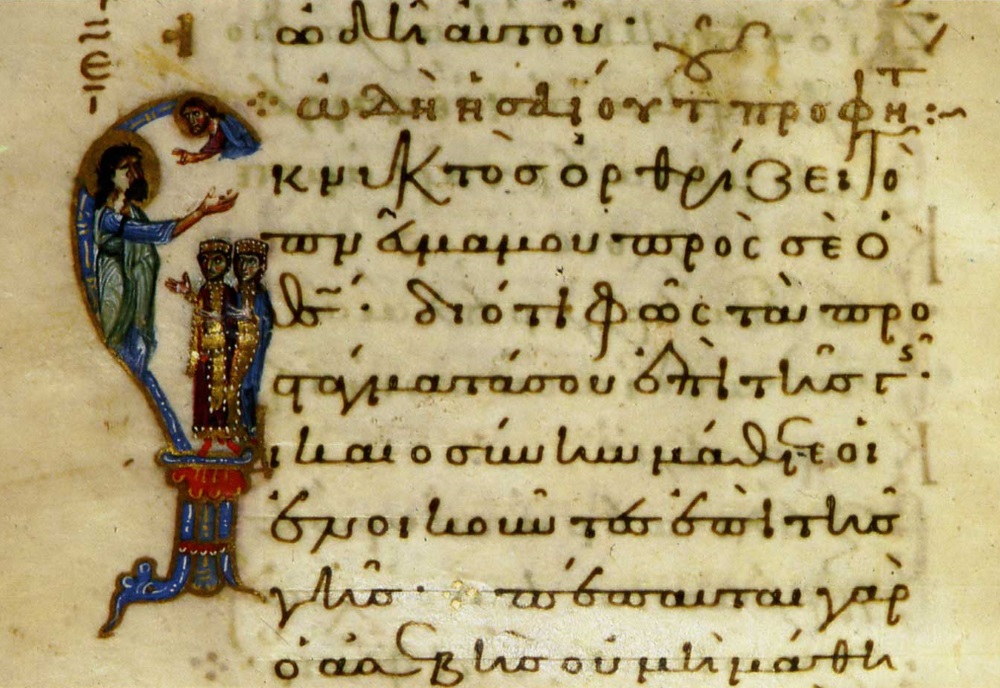 ὠδῆ αυτοῦ ·
ὠδὴ ἠσαΐου τ προφητ :~
Εκ νυκτὸσ ὀρθρίζει τὸ
πνεῦμα μου πρὸς σὲ ὁ
θς̅ · διότι φῶς τὰ προ
σταγματά σου ἐπὶ τῆσ γ ·
δικαιοσύνην μάθετε οἱ
ἐνοικοῦντεσ ἐπὶ τῆσ
γῆσ · πέπαυται γὰρ
ὁ ἀσεβὴσ οὐ μὴ μάθη